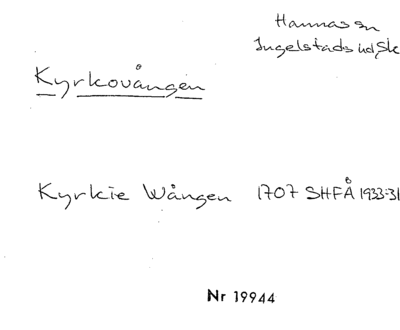 Hannas sn
Ingelstads hd, Sk
Kyrkovången
Kyrkie Wången 1707 SHFÅ 1933-31
Nr 19944